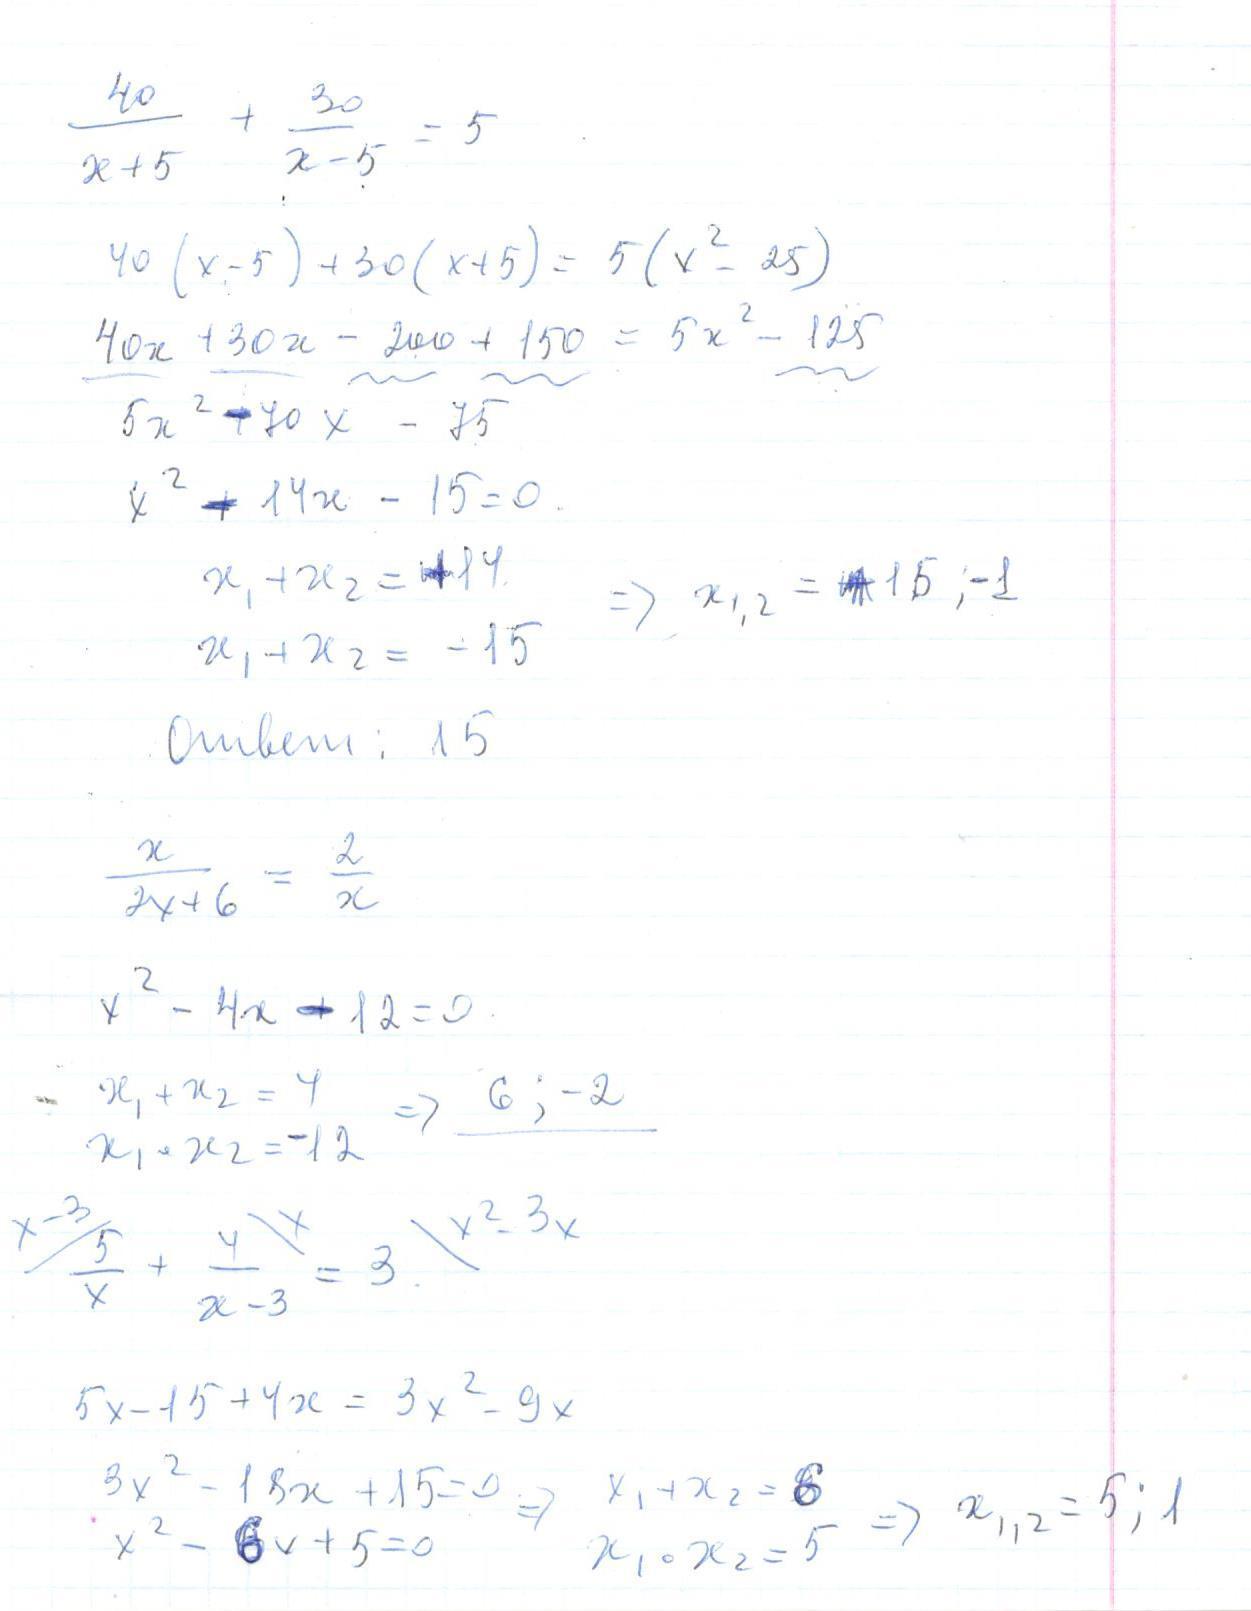 40/(x+5) + 30/(x-5) = 5
40(x-5)+30(x+5)= 5(x²-25)
40x+30x-200+150 = 5x²-125
5x²-70x - 75
x² - 14x - 15=0
x₁+x₂=+14
x₁+x₂= -15
=> x₁,₂ = 15;-1
Ответ: 15
x/(2x+6) = 2/x
x²-4x-12=0
x₁+x₂=4
x₁·x₂=-12
=> 6;-2
x-3 x x²-3x
5/x + 4/(x-3) = 3
5x-15+4x=3x²-9x
3x²-18x+15=0 => x₁+x₂=6
x²-6x+5=0 x₁·x₂=5
=> x₁,₂=5;1